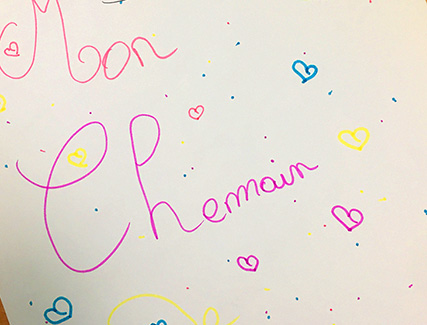 Mon
Chemain